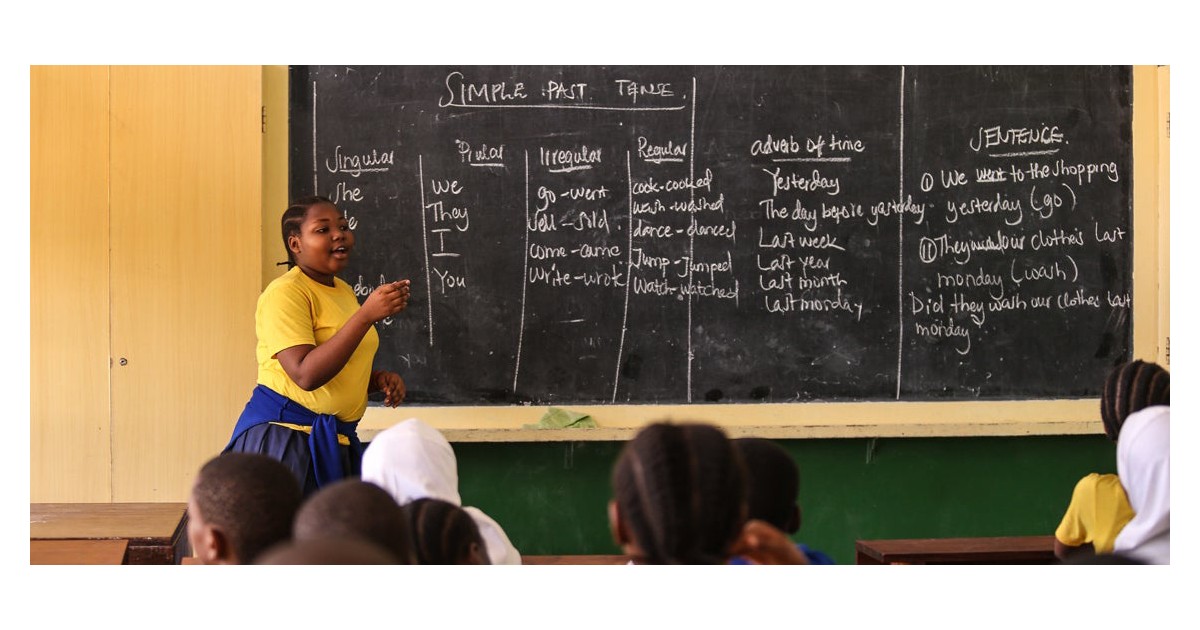 SIMPLE PAST TENSE.
Singular
She
Plular
We
They
I
You
Irregular
go - went
Sell - Sold.
come - came
Write - wrote
Regular
cook - cooked
wash - washed
dance - danced
Jump - Jumped
Watch - watched
adverb of time
Yesterday
The day before yesterday
Last week
Last year
Last month
Last monday
SENTENCE.
(i) We went to the shopping
yesterday (go)
(ii) They our clothes Last
monday (wash)
Did they wash our clothes last
monday